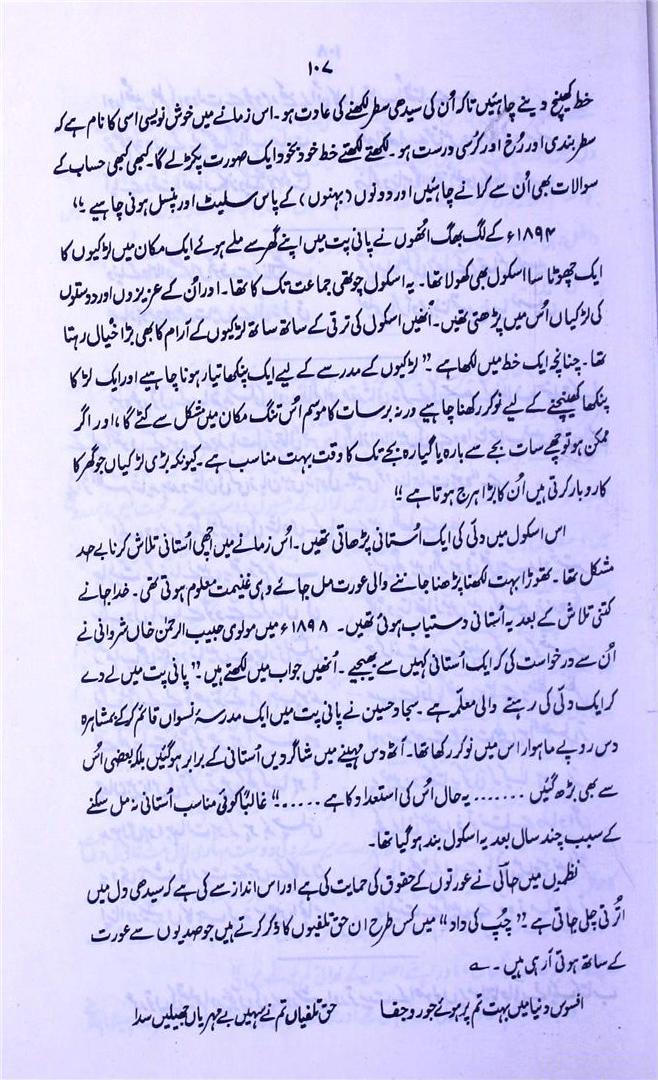 ۱۰۷
خط کھینچ دینے چاہئیں تاکہ اُن کی سیدھی سطر لکھنے کی عادت ہو۔ اس زمانے میں خوش نویسی اسی کا نام ہے کہ
سطر بندی اور رُخ اور کُرسی درست ہو۔ لکھتے لکھتے خط خود بخود ایک صورت پکڑلے گا۔ کبھی کبھی حساب کے
سوالات بھی اُن سے کرانے چاہئیں اور دونوں (بہنوں) کے پاس سلیٹ اور پنسل ہونی چاہیے۔"
۱۸۹۴ء کے لگ بھگ انھوں نے پانی پت میں اپنے گھر سے ملے ہوئے ایک مکان میں لڑکیوں کا
ایک چھوٹا سا اسکول بھی کھولا تھا۔ یہ اسکول چوتھی جماعت تک کا تھا۔ اور اُن کے عزیزوں اور دوستوں
کی لڑکیاں اُس میں پڑھتی تھیں۔ اُنھیں اسکول کی ترقی کے ساتھ ساتھ لڑکیوں کے آرام کا بھی بڑا خیال رہتا
تھا۔ چنانچہ ایک خط میں لکھا ہے۔ "لڑکیوں کے مدرسے کے لیے ایک پنکھا تیار ہونا چاہیے اور ایک لڑکا
پنکھا کھینچنے کے لیے نوکر رکھنا چاہیے ورنہ برسات کا موسم اُس تنگ مکان میں مشکل سے کٹے گا، اور اگر
ممکن ہو تو چھے سات بجے سے بارہ یا گیارہ بجے تک کا وقت بہت مناسب ہے۔ کیونکہ بڑی لڑکیاں جو گھر کا
کاروبار کرتی ہیں اُن کا بڑا ہرج ہوتا ہے"
اس اسکول میں دلّی کی ایک اُستانی پڑھاتی تھیں۔ اُس زمانے میں اچھی اُستانی تلاش کرنا بے حد
مشکل تھا۔ تھوڑا بہت لکھنا پڑھنا جاننے والی عورت مل جائے وہی غنیمت معلوم ہوتی تھی۔ خدا جانے
کتنی تلاش کے بعد یہ اُستانی دستیاب ہوئی تھیں۔ ۱۸۹۸ء میں مولوی حبیب الرحمٰن خاں شروانی نے
اُن سے درخواست کی کہ ایک اُستانی کہیں سے بھیجیے۔ اُنھیں جواب میں لکھتے ہیں۔ "پانی پت میں لے دے
کر ایک دلّی کی رہنے والی معلّمہ ہے۔ سجاد حسین نے پانی پت میں ایک مدرسۂ نسواں قائم کر کے بمشاہرہ
دس روپے ماہوار اس میں نوکر رکھا تھا۔ آٹھ دس مہینے میں شاگردیں اُستانی کے برابر ہوگئیں بلکہ بعضی اُس
سے بھی بڑھ گئیں ....... یہ حال اُس کی استعداد کا ہے ......" غالباً کوئی مناسب اُستانی نہ مل سکنے
کے سبب چند سال بعد یہ اسکول بند ہو گیا تھا۔
نظمیں میں حالؔی نے عورتوں کے حقوق کی حمایت کی ہے اور اس انداز سے کی ہے کہ سیدھی دل میں
اتُرتی چلی جاتی ہے۔ "چُپ کی داد" میں کس طرح ان حق تلفیوں کا ذکر کرتے ہیں جو صدیوں سے عورت
کے ساتھ ہوتی آرہی ہیں۔ ؎
افسوس دنیا میں بہت تم پر ہوئے جور و جفا حق تلفیاں تم نے سہیں بے مہریاں جھیلیں سدا